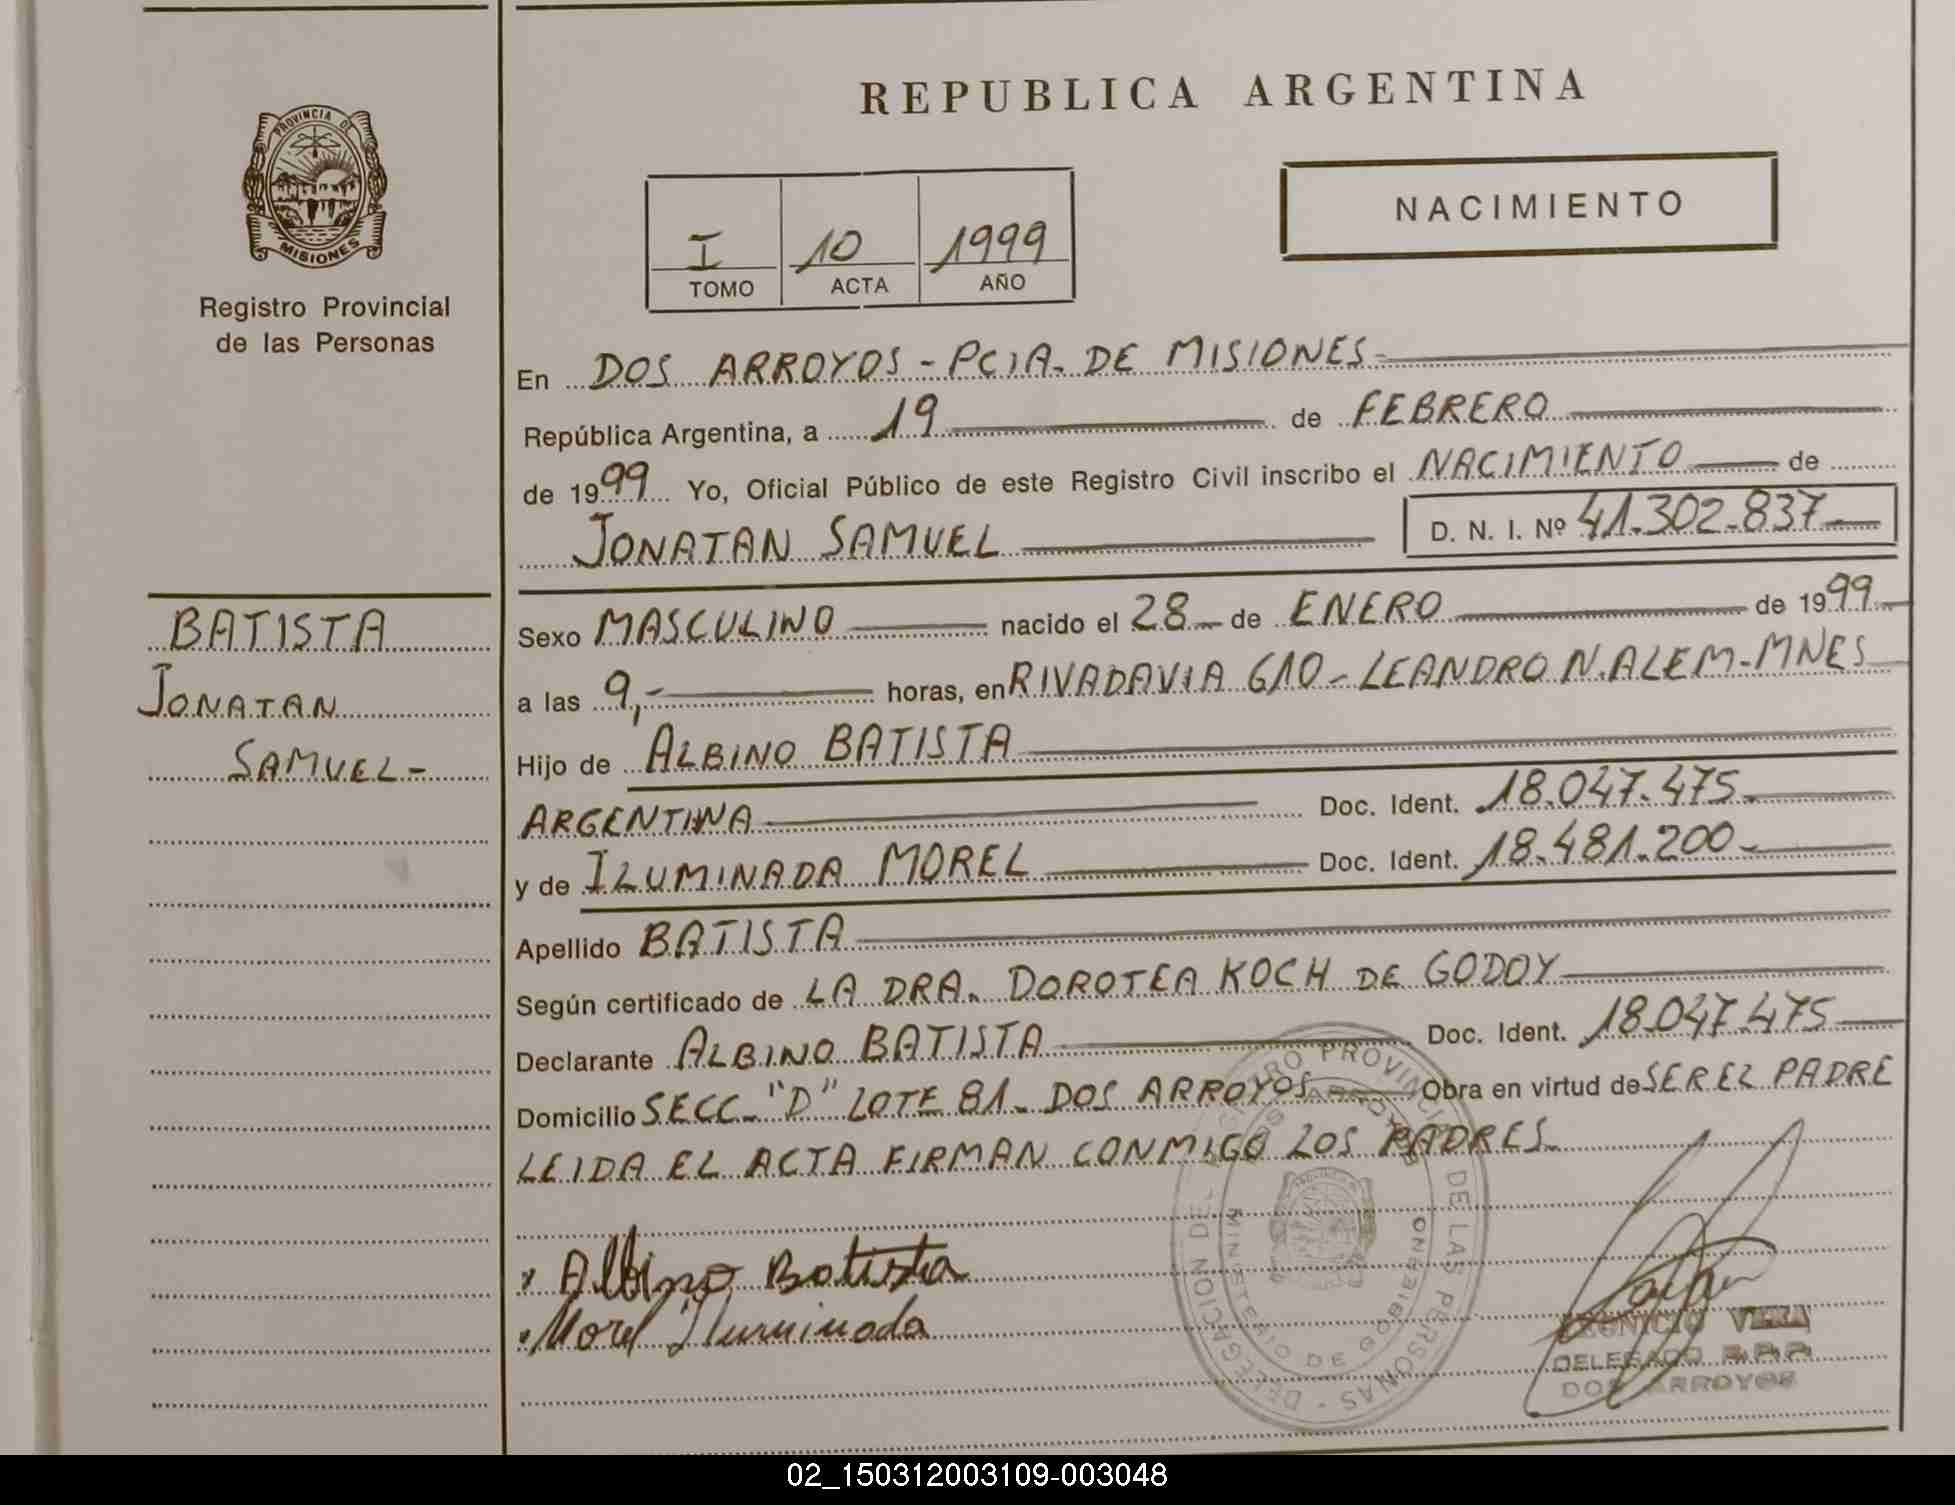 REPUBLICA ARGENTINA
PROVINCIA DE
MISIONES
Registro Provincial
de las Personas
NACIMIENTO
I 10 1999
TOMO ACTA AÑO
En DOS ARROYOS - PCIA. DE MISIONES
República Argentina, a 19 de FEBRERO
de 1999 Yo, Oficial Público de este Registro Civil inscribo el NACIMIENTO de
JONATAN SAMUEL D. N. I. Nº 41.302.837
BATISTA
JONATAN
SAMUEL-
Sexo MASCULINO nacido el 28 de ENERO de 1999
a las 9,- horas, en RIVADAVIA 610 - LEANDRO N. ALEM - MNES
Hijo de ALBINO BATISTA
ARGENTINA Doc. Ident. 18.047.475
y de ILUMINADA MOREL Doc. Ident. 18.481.200
Apellido BATISTA
Según certificado de LA DRA. DOROTEA KOCH DE GODOY
Declarante ALBINO BATISTA Doc. Ident. 18.047.475
Domicilio SECC. "D" LOTE 81 - DOS ARROYOS Obra en virtud de SER EL PADRE
LEIDA EL ACTA FIRMAN CONMIGO LOS PADRES.
Albino Batista
Morel Iluminada
DELEGACION DEL REGISTRO PROVINCIAL DE LAS PERSONAS -
DOS ARROYOS
MINISTERIO DE GOBIERNO
VERA
DELEGADO R.P.P
DOS ARROYOS
02_150312003109-003048